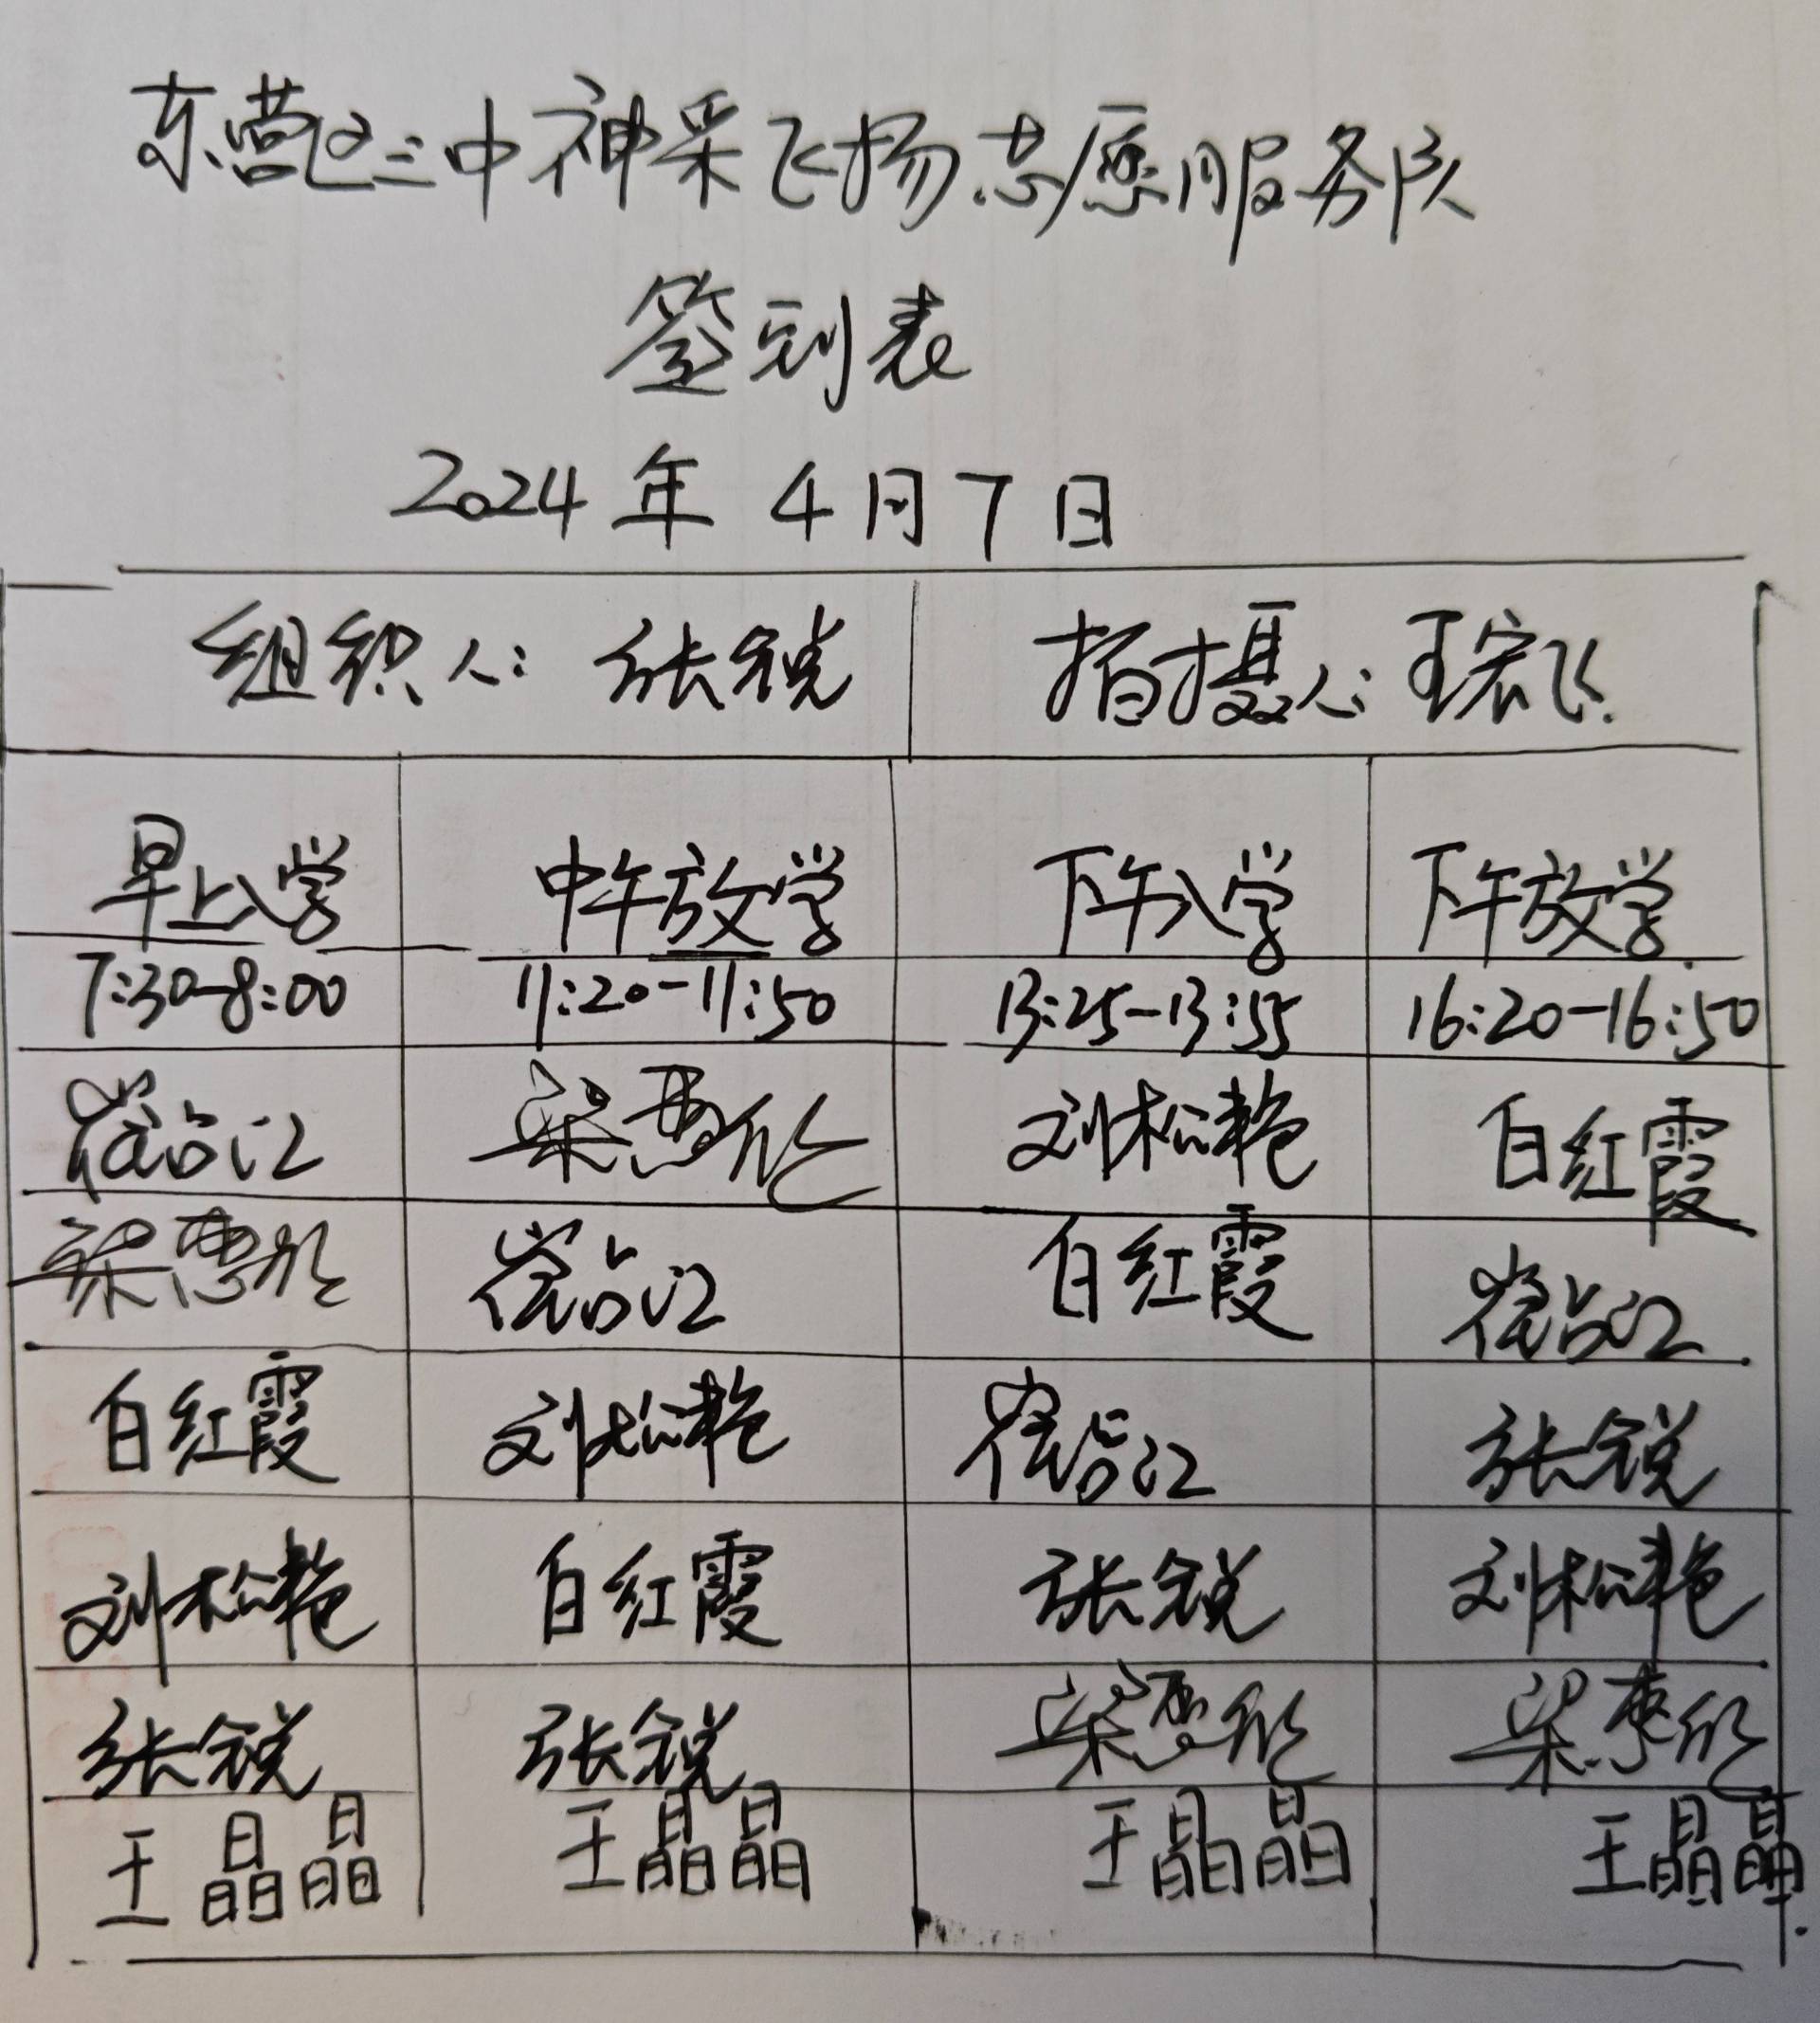 东营区三中神采飞扬志愿服务队
签到表
2024年4月7日
组织人：张锐 拍摄人：王宏飞
早上入学 中午放学 下午入学 下午放学
7:30-8:00 11:20-11:50 13:25-13:55 16:20-16:50
崔占江 梁惠欣 刘松艳 白红霞
梁惠欣 崔占江 白红霞 崔占江
白红霞 刘松艳 崔占江 张锐
刘松艳 白红霞 张锐 刘松艳
张锐 张锐 梁惠欣 梁惠欣
王晶晶 王晶晶 王晶晶 王晶晶